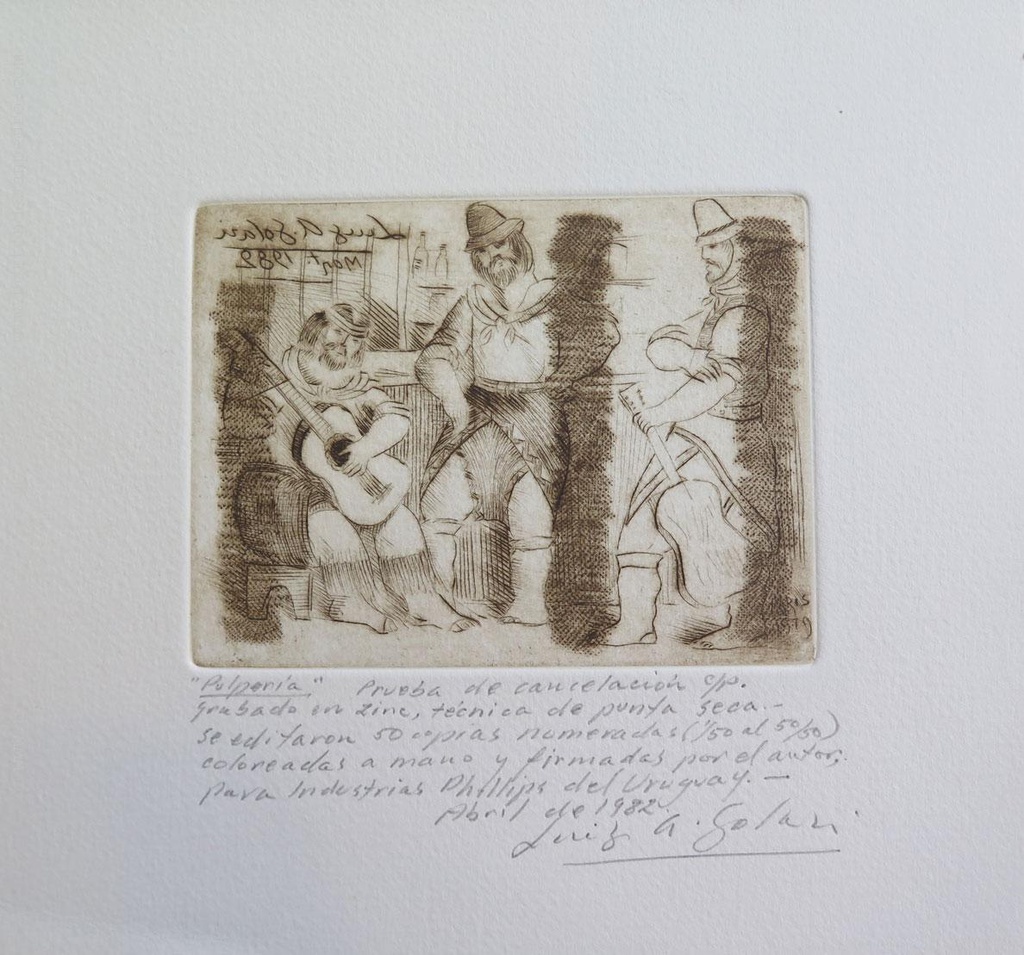 Luiz A Solari
Mayt 1982
"Pulpería" Prueba de cancelación c/p.
grabado en zinc, técnica de punta seca.-
se editaron 50 copias numeradas (1/50 al 50/50)
coloreadas a mano y firmadas por el autor;
para Industrias Phillips del Uruguay.—
Abril de 1982.
Luiz A. Solari